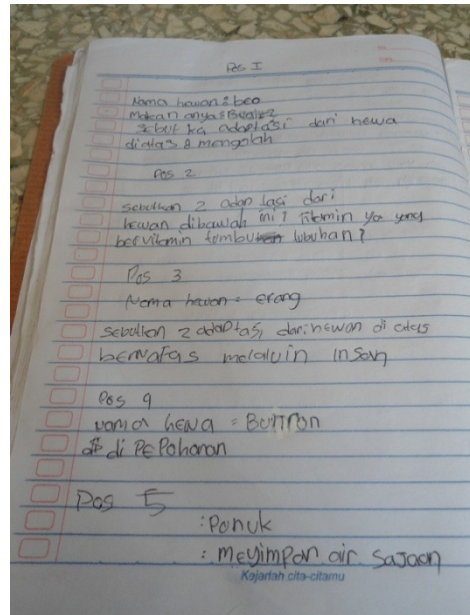 Pos I
Nama hewan : beo
makan anya : Buah2
sebut ka adaptasi dari hewa
diatas : mengolah
Pos 2
sebutkan 2 adap tasi dari
hewan dibawah ini? Fitamin ya yang
bervitamin tumbu tubuhan?
Pos 3
Nama hewan = erang
sebutkan 2 adaptasi dari hewan di atas
bernafas melaluin insan
Pos 4
nama hewa = Bunron
di PEPohonan
Pos 5
: Ponuk
: meyimpan air sajaan
Kejarlah cita-citamu